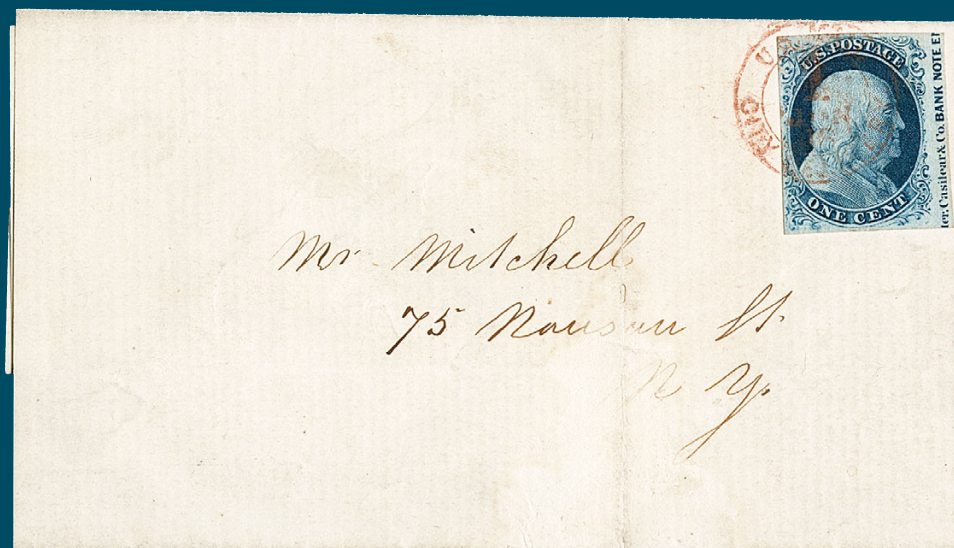 U.S. POSTAGE
ONE CENT
Casilear & Co. BANK NOTE
Mr Mitchell
75 Nausau St.
N Y.